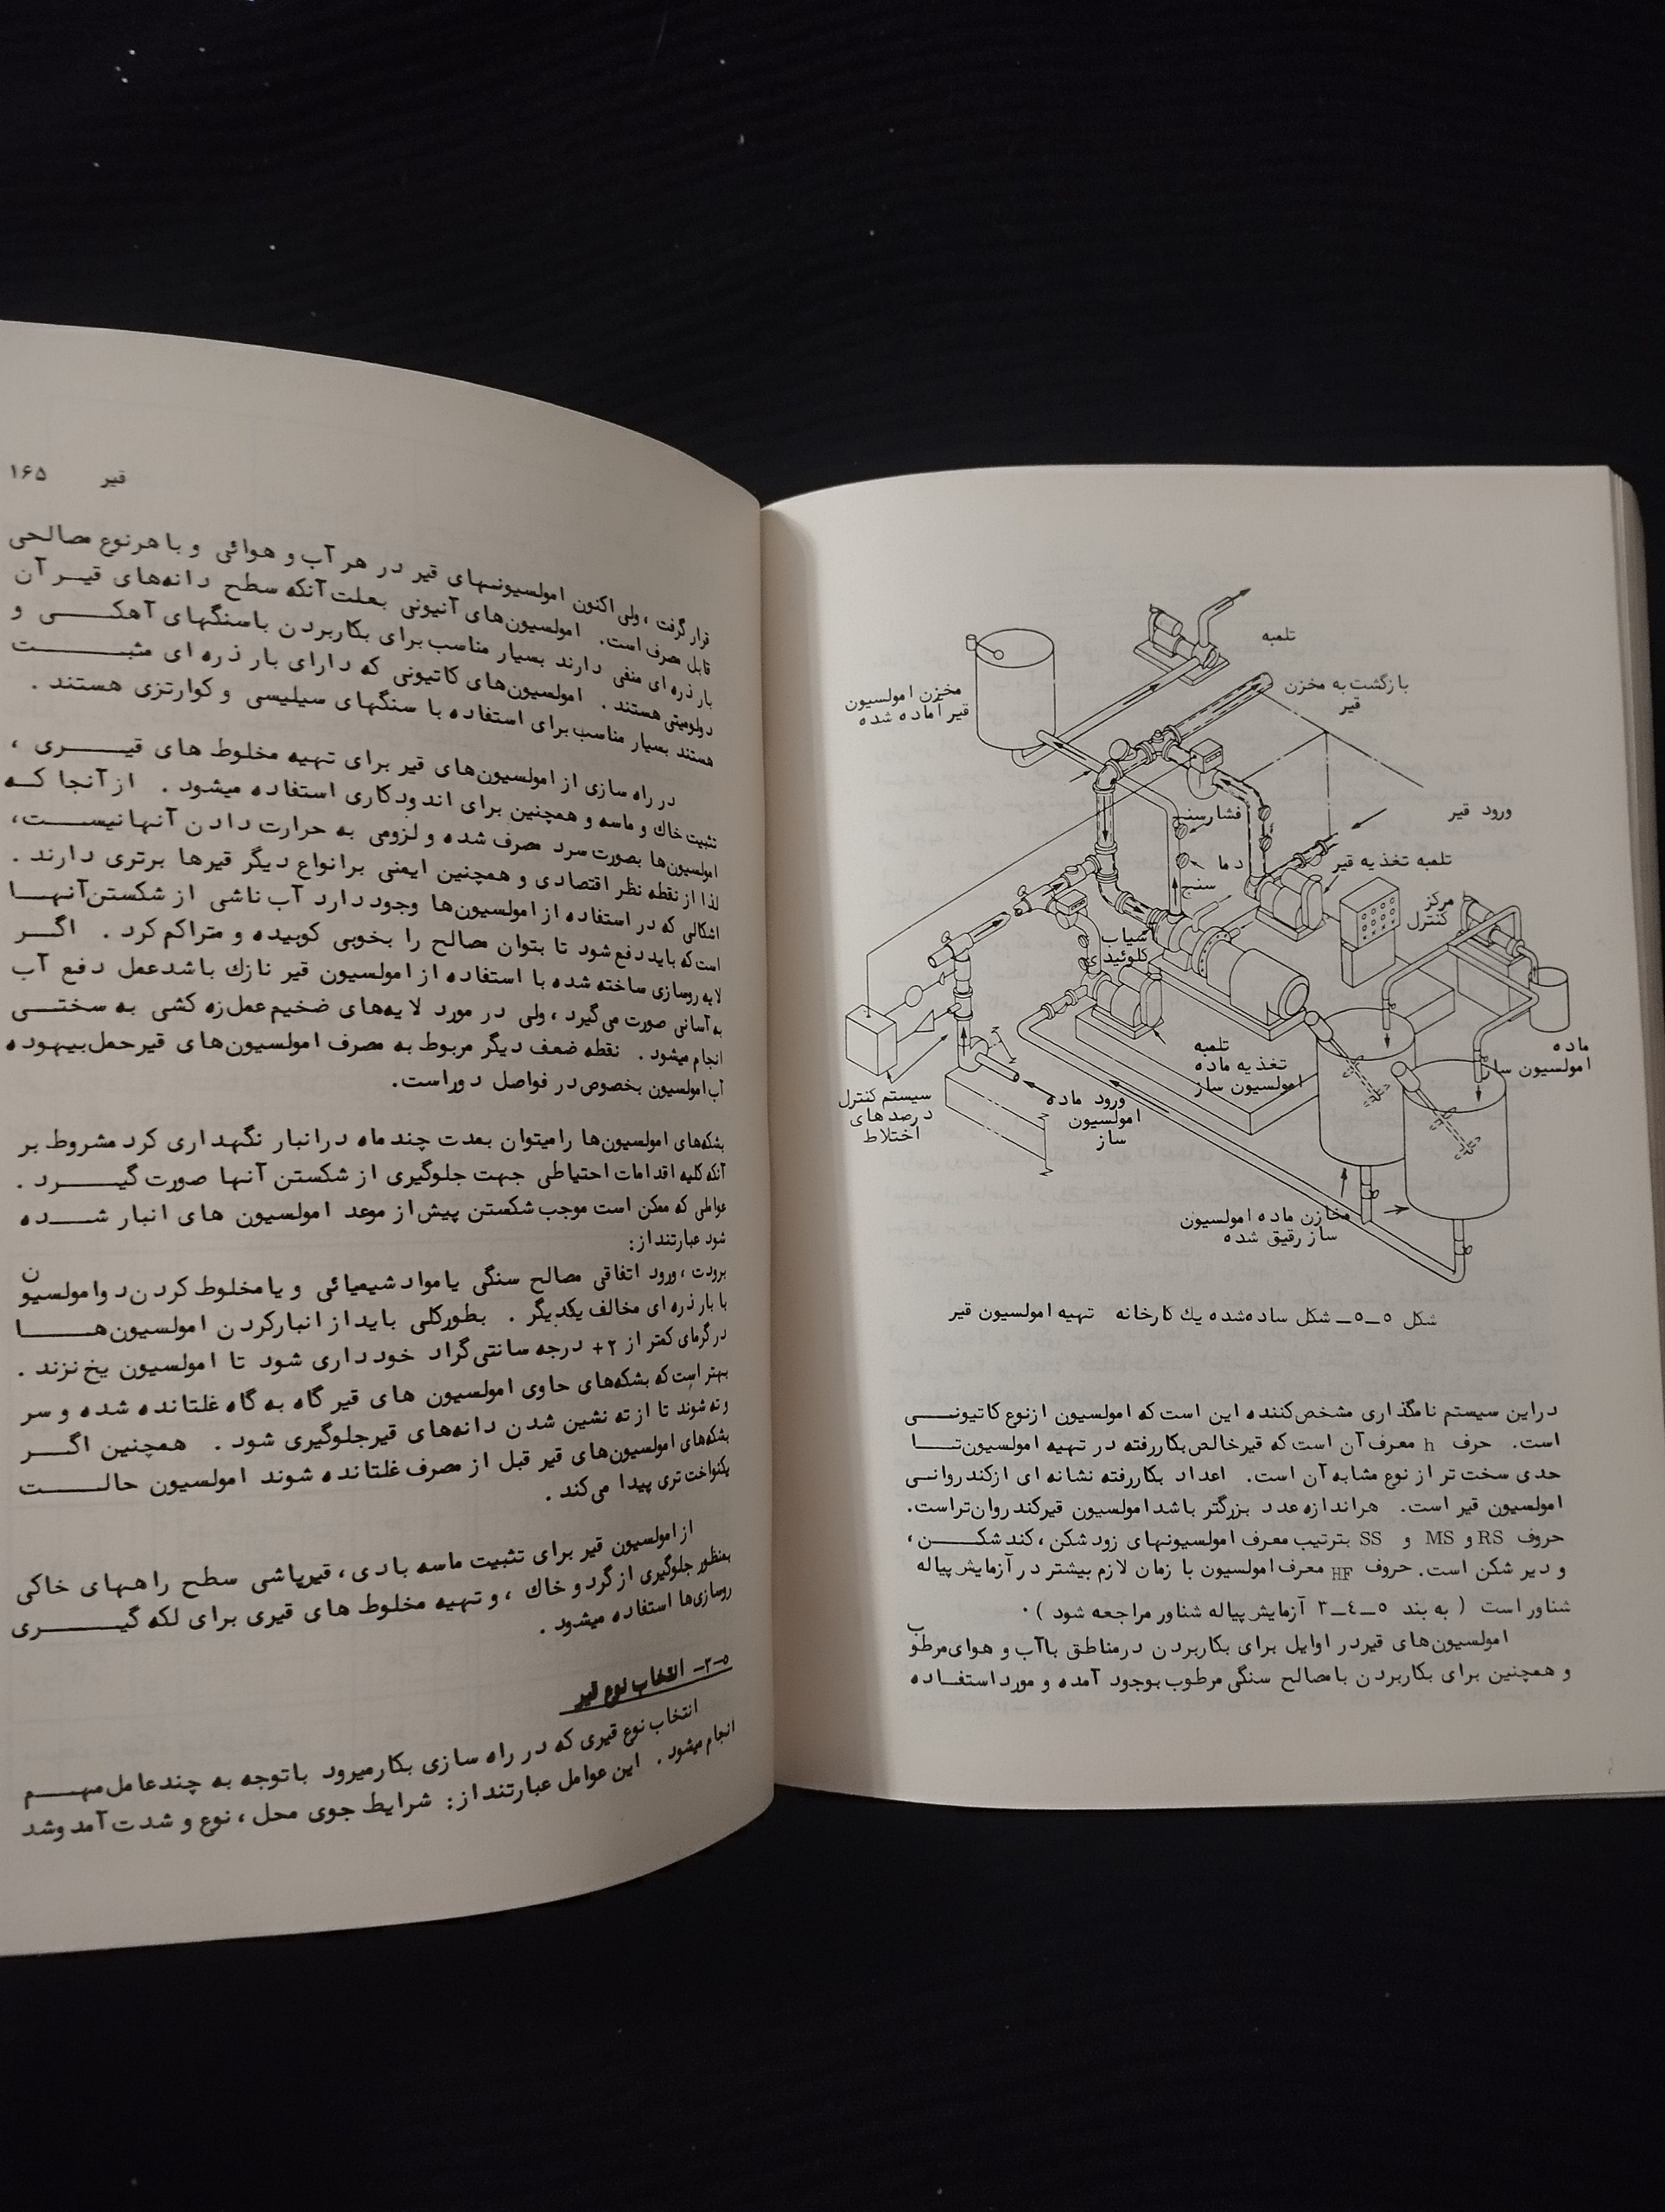 تلمبه
بازگشت به مخزن
قیر
مخزن امولسیون
قیر آماده شده
فشارسنج
ورود قیر
دما
سنج
تلمبه تغذیه قیر
مرکز
کنترل
آسیاب
کلوئیدی
تلمبه
تغذیه ماده
امولسیون ساز
ماده
امولسیون ساز
سیستم کنترل
درصدهای
اختلاط
ورود ماده
امولسیون
ساز
مخازن ماده امولسیون
ساز رقیق شده
شکل ۵ــ۵ــ شکل ساده‌شده یك کارخانه تهیه امولسیون قیر
دراین سیستم نامگذاری مشخص‌کننده این است که امولسیون ازنوع کاتیونــی
است. حرف h معرف آن است که قیرخالص بکاررفته در تهیه امولسیون تــا
حدی سخت تر از نوع مشابه آن است. اعداد بکاررفته نشانه ای ازکندروانی
امولسیون قیر است. هراندازه عدد بزرگتر باشد امولسیون قیرکندروان‌تر است.
حروف RS و MS و SS بترتیب معرف امولسیونهای زودشکن، کندشکــن،
و دیر شکن است. حروف HF معرف امولسیون با زمان لازم بیشتر در آزمایش پیاله
شناور است ( به بند ۵ــ٤ــ۳ آزمایش پیاله شناور مراجعه شود ).
امولسیون‌های قیردر اوایل برای بکاربردن درمناطق باآب و هوای مرطوب
و همچنین برای بکاربردن بامصالح سنگی مرطوب بوجود آمده و مورد استفــاده
قیر ۱۶۵
قرار گرفت، ولی اکنون امولسیونهای قیر در هر آب و هوائی و با هرنوع مصالحی
قابل مصرف است. امولسیون‌های آنیونی بعلت آنکه سطح دانه‌های قیــر آن
بار ذره ای منفی دارند بسیار مناسب برای بکاربردن باسنگهای آهکــی و
دولومیتی هستند. امولسیون‌های کاتیونی که دارای بار ذره ای مثبــت
هستند بسیار مناسب برای استفاده با سنگهای سیلیسی و کوارتزی هستند.
در راه سازی از امولسیون‌های قیر برای تهیه مخلوط های قیــری،
تثبیت خاك و ماسه و همچنین برای اندودکاری استفاده میشود. ازآنجا کــه
امولسیون‌ها بصورت سرد مصرف شده و لزومی به حرارت دادن آنها نیســت،
لذا از نقطه نظر اقتصادی و همچنین ایمنی برانواع دیگر قیرها برتری دارند.
اشکالی که در استفاده از امولسیون‌ها وجود دارد آب ناشی از شکستن آنهــا
است که باید دفع شود تا بتوان مصالح را بخوبی کوبیده و متراکم کرد. اگــر
لایه روسازی ساخته شده با استفاده از امولسیون قیر نازك باشد عمل دفع آب
به آسانی صورت می‌گیرد، ولی در مورد لایه‌های ضخیم عمل زه کشی به سختــی
انجام میشود. نقطه ضعف دیگر مربوط به مصرف امولسیون‌های قیر حمل بیهوده
آب امولسیون بخصوص در فواصل دور است.
بشکه‌های امولسیون‌ها را میتوان بمدت چند ماه درانبار نگهداری کرد مشروط بر
آنکه کلیه اقدامات احتیاطی جهت جلوگیری از شکستن آنها صورت گیــرد.
عواملی که ممکن است موجب شکستن پیش از موعد امولسیون های انبار شــده
شود عبارتند از:
برودت، ورود اتفاقی مصالح سنگی یا مواد شیمیائی و یا مخلوط کردن دو امولسیون
با بار ذره ای مخالف یکدیگر. بطورکلی باید از انبارکردن امولسیون‌هــا
درگرمای کمتر از ۲+ درجه سانتی‌گراد خودداری شود تا امولسیون یخ نزند.
بهتر است که بشکه‌های حاوی امولسیون های قیر گاه به گاه غلتانده شده و سر
وته شوند تا از ته نشین شدن دانه‌های قیر جلوگیری شود. همچنین اگــر
بشکه‌های امولسیون‌های قیر قبل از مصرف غلتانده شوند امولسیون حالــت
یکنواخت تری پیدا می‌کند.
از امولسیون قیر برای تثبیت ماسه بادی، قیرپاشی سطح راههای خاکی
بمنظور جلوگیری از گرد و خاك، و تهیه مخلوط های قیری برای لکه گیــری
روسازی‌ها استفاده میشود.
۵ــ۳ــ انتخاب نوع قیر
انتخاب نوع قیری که در راه سازی بکارمیرود باتوجه به چندعامل مهــم
انجام میشود. این عوامل عبارتند از: شرایط جوی محل، نوع و شدت آمد وشد